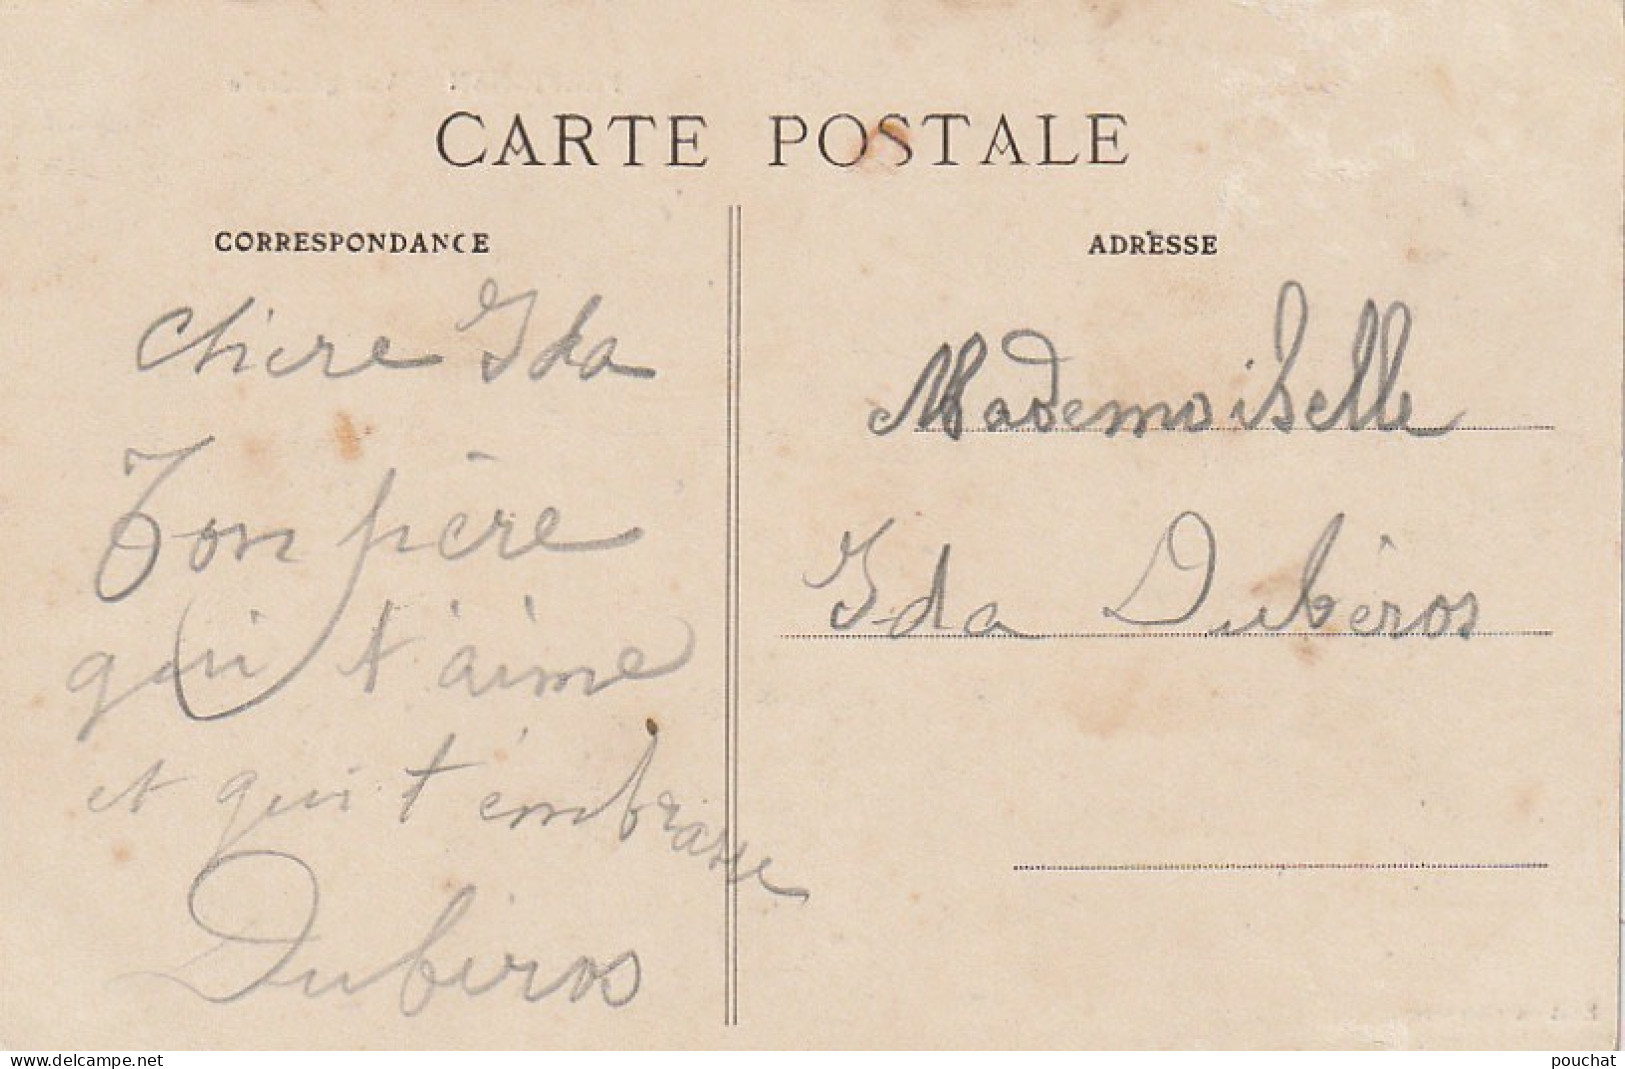 CARTE POSTALE
CORRESPONDANCE
chère Ida
Ton père
qui t'aime
et qui t'embrasse
Dubéros
ADRESSE
Mademoiselle
Ida Dubéros
www.delcampe.net
pouchat